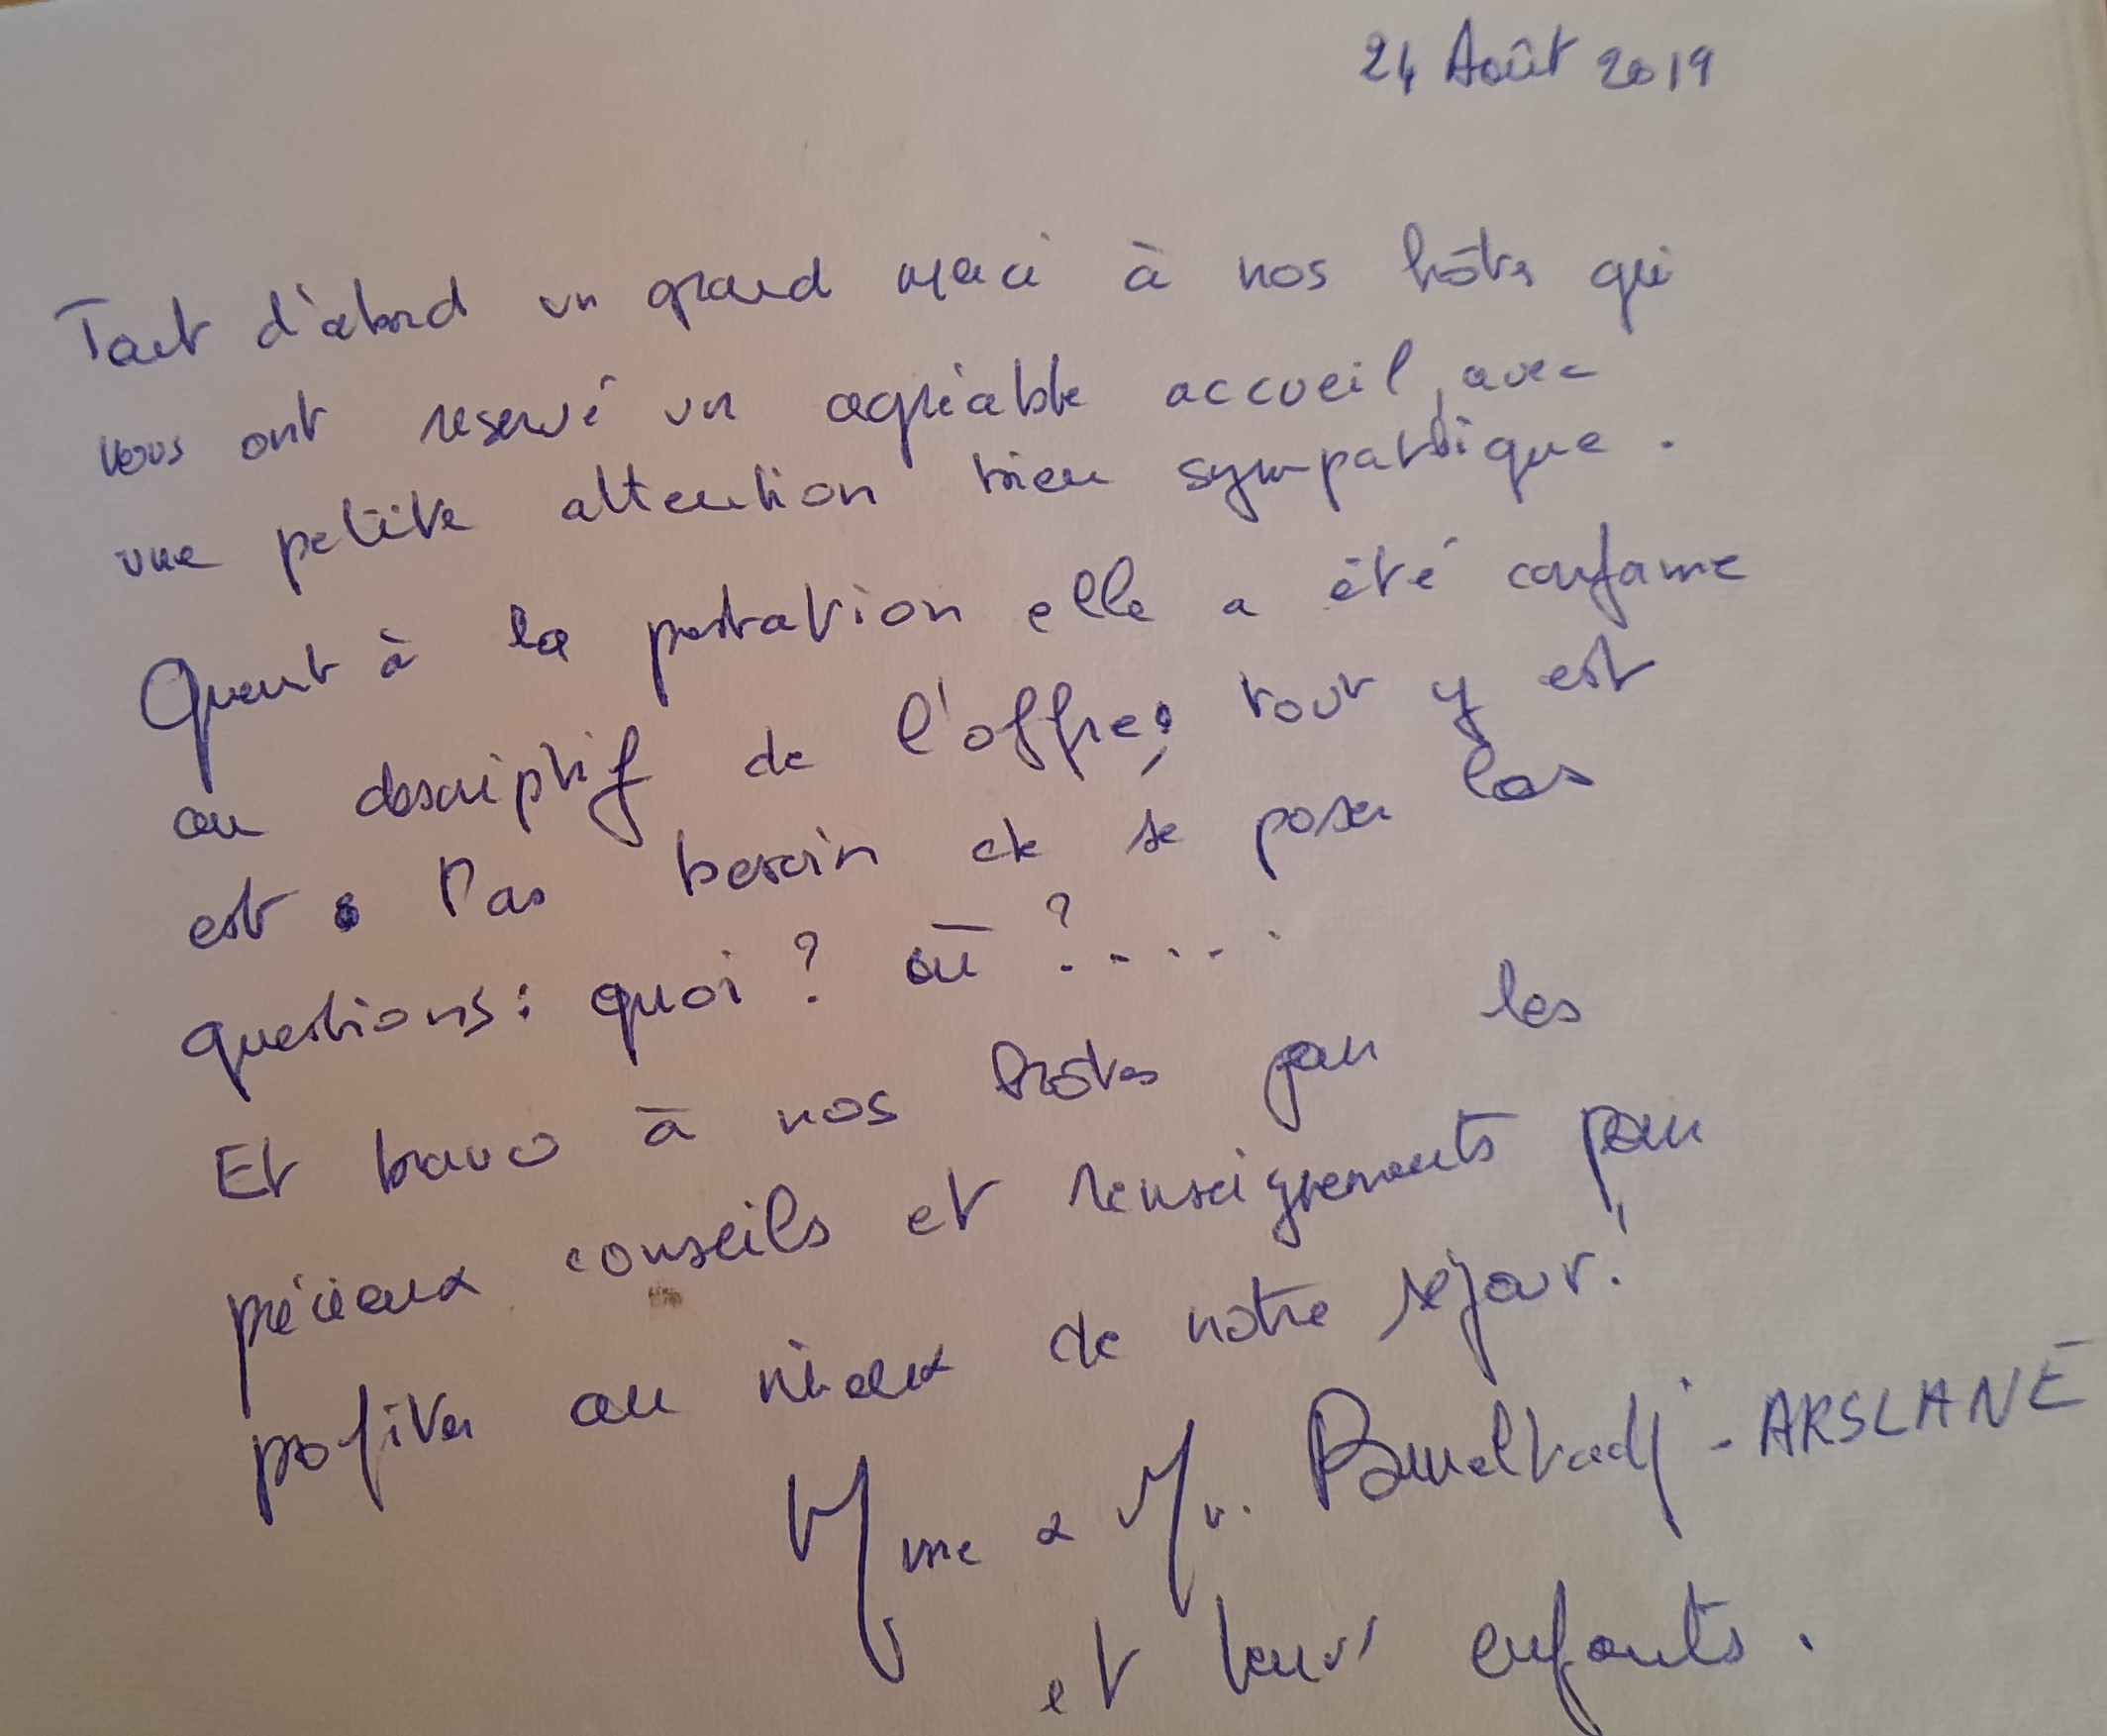 24 Août 2019
Tout d'abord un grand merci à nos hôtes qui
nous ont reservé un agréable accueil, avec
une petite attention bien sympathique.
Quant à la prestation elle a été conforme
au descriptif de l'offre, tout y est
est. Pas besoin de se poser les
questions: quoi ? où ?.....
Et bravo à nos hôtes pour les
précieux conseils et renseignements pour
profiter au mieux de notre séjour!
Mme & Mr. - ARSLANE
et leurs enfants.